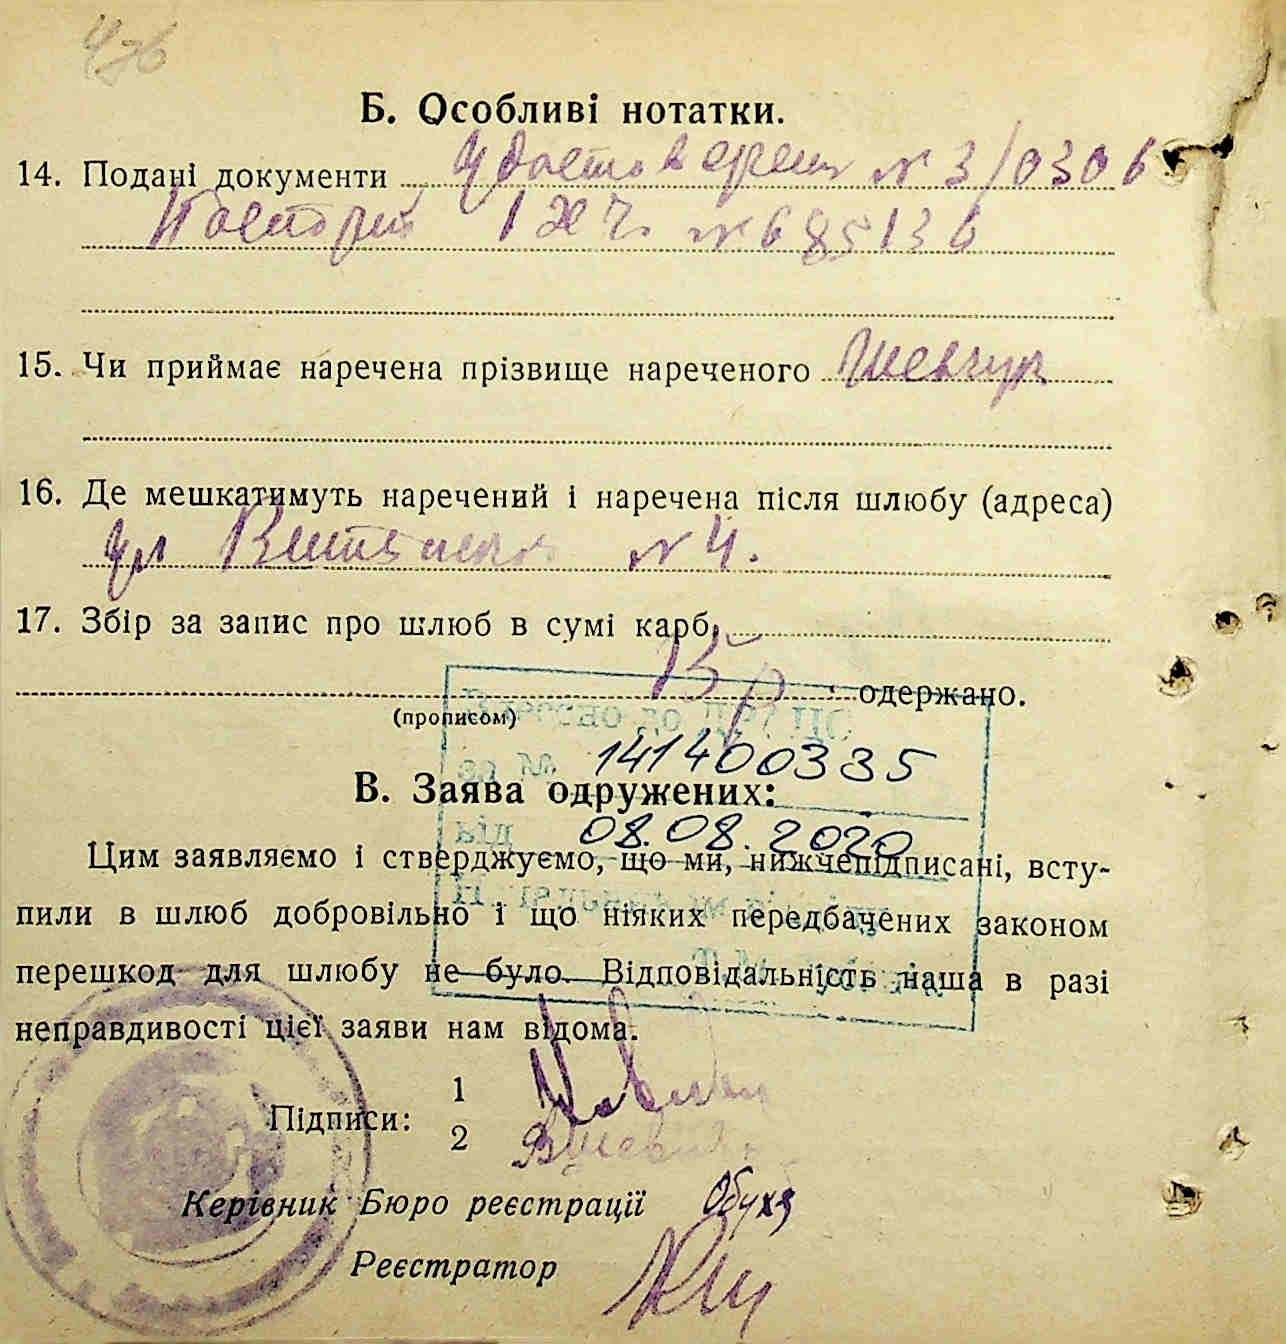 Б. Особливі нотатки.
14. Подані документи удостоверен № 3/0306
Паспорт № 685136
15. Чи приймає наречена прізвище нареченого Шевчук
16. Де мешкатимуть наречений і наречена після шлюбу (адреса)
ул № 4.
17. Збір за запис про шлюб в сумі карб.
15 р одержано.
(прописом)
141400335
В. Заява одружених:
08.08.2020
Цим заявляємо і стверджуємо, що ми, нижчепідписані, всту-
пили в шлюб добровільно і що ніяких передбачених законом
перешкод для шлюбу не було. Відповідальність наша в разі
неправдивості цієї заяви нам відома.
Підписи:
1
2
Керівник Бюро реєстрації
Реєстратор